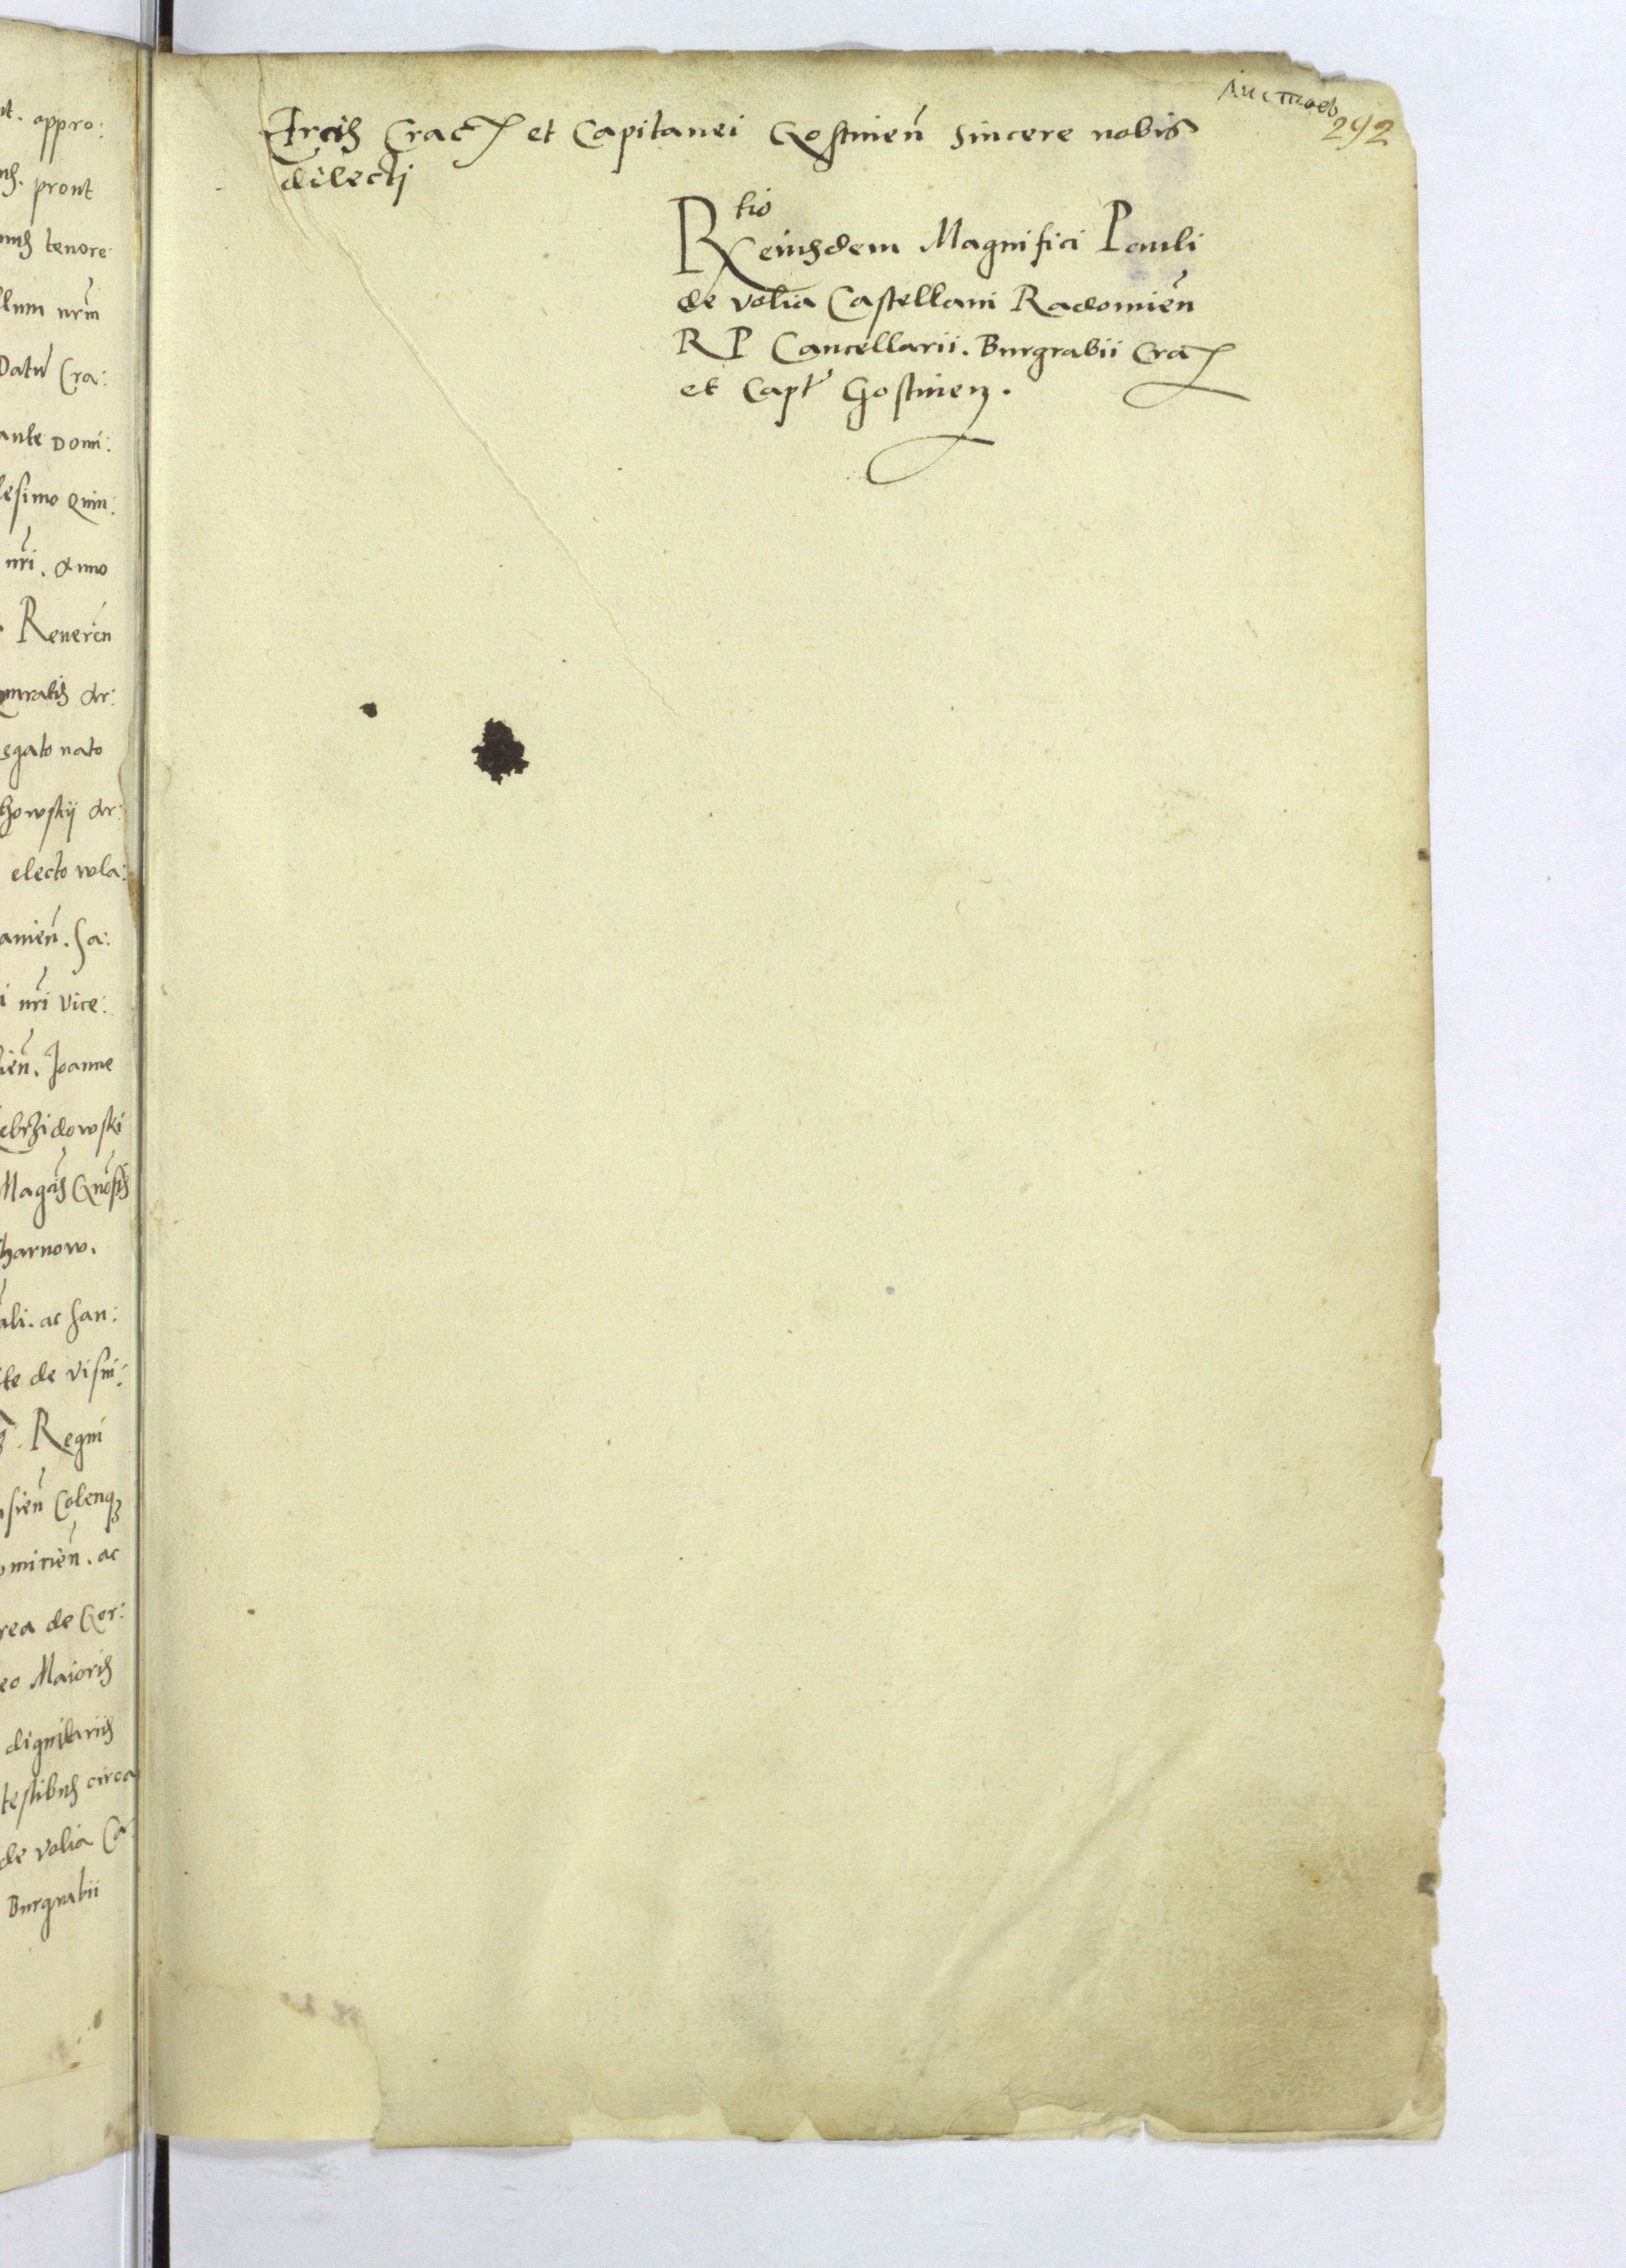 nt. appro:
ns. prout
mus tenore
llum nrm̃
Datũ Cra:
ante Domi:
lesimo quin:
nri. Anno
Reueren̄
mratis Ar:
egato nato
howskij Ar:
electo wla:
amien̄. Sa:
i nri Vice:
ien̄. Joanne
ebrzidowski
Magcis Gnosis
tharnow.
ali. ac San:
te de Visni:
Regni
sien̄ Colenq3
omirien̄. ac
rea de Gor:
eo Maioris
dignitariis
testibus circa
de Volia Ca
Burgrabii
Листовъ
292
Arcis Crac et Capitanei Gostinen̄ Sincere nobis
dilecti
Rtio eiusdem Magnifici Pauli
de Volia Castellani Radomien̄
R P Cancellarii. Burgrabii Cra
et Capt Gostinen.